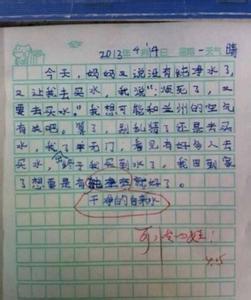 2013年4月14日 星期一 天气 晴
今天，妈妈又说没有纯净水了，
又让我去买水，我说："烦死了，又
要去买水。"我想可能和兰州的空气
有关吧。算了，别纠结了还是去买
水，我了半天门，看见有好多人去
买水，终于我买到水了，我回到家
了想要是有就好了。
干净的自来水
可怜的娃！
4.15